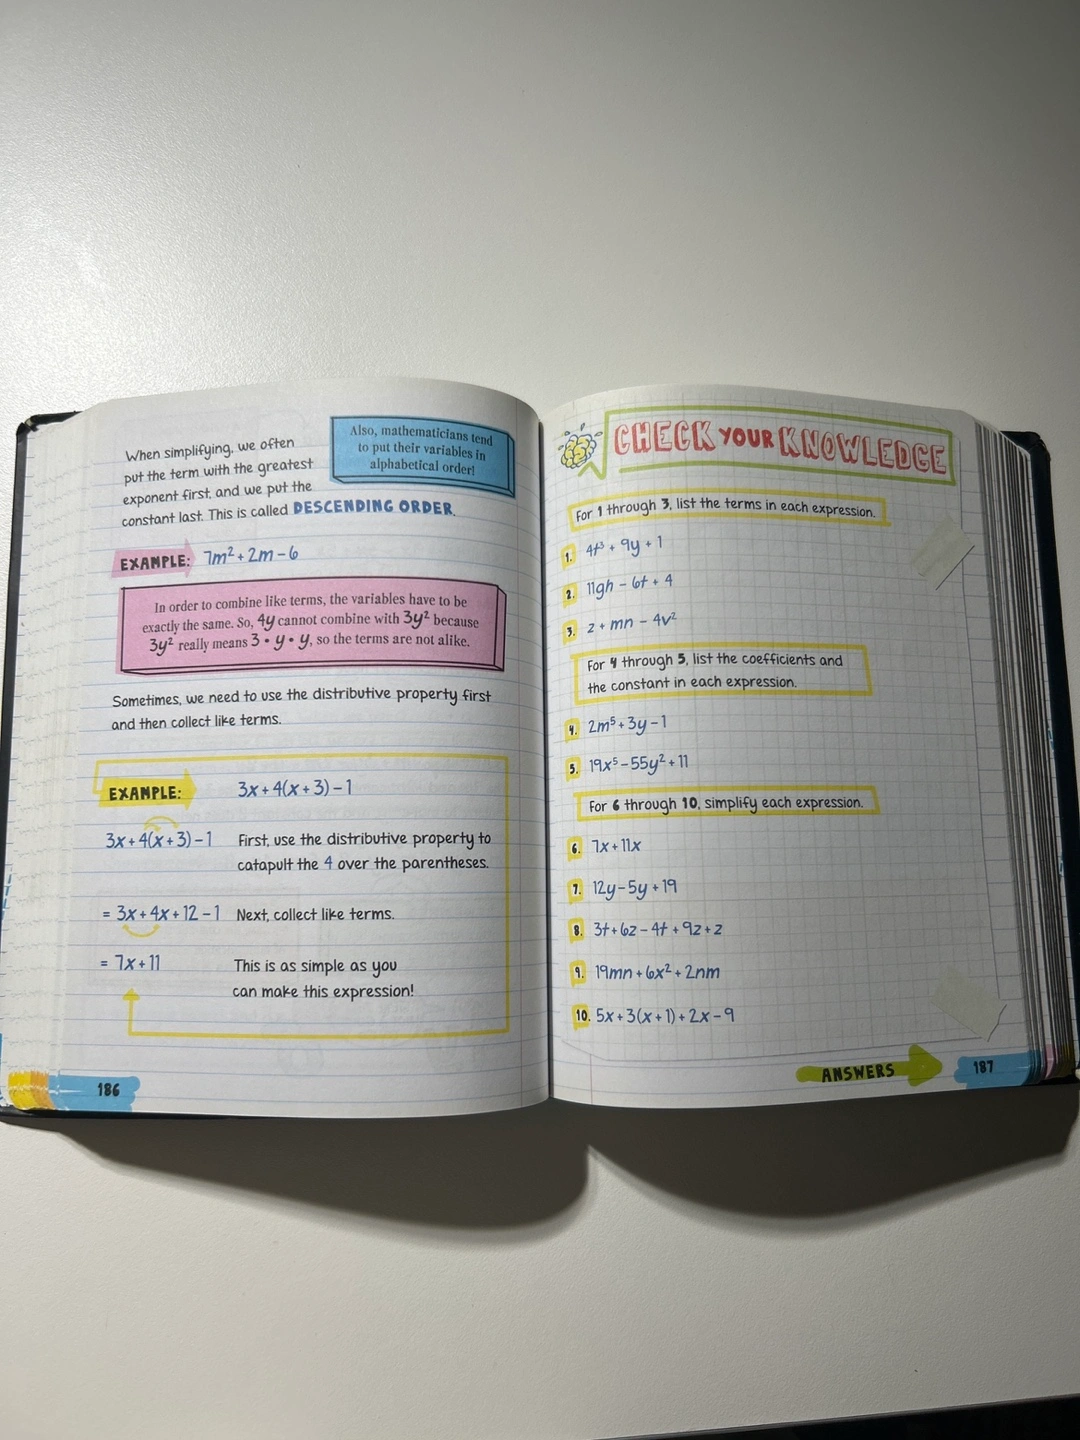 When simplifying, we often
put the term with the greatest
exponent first, and we put the
constant last. This is called DESCENDING ORDER.
Also, mathematicians tend
to put their variables in
alphabetical order!
EXAMPLE: 7m² + 2m – 6
In order to combine like terms, the variables have to be
exactly the same. So, 4y cannot combine with 3y² because
3y² really means 3 • y • y, so the terms are not alike.
Sometimes, we need to use the distributive property first
and then collect like terms.
EXAMPLE: 3x + 4(x + 3) – 1
3x + 4(x + 3) – 1 First, use the distributive property to
catapult the 4 over the parentheses.
= 3x + 4x + 12 – 1 Next, collect like terms.
= 7x + 11 This is as simple as you
can make this expression!
186
CHECK YOUR KNOWLEDGE
For 1 through 3, list the terms in each expression.
1. 4t³ + 9y + 1
2. 11gh – 6t + 4
3. z + mn – 4v²
For 4 through 5, list the coefficients and
the constant in each expression.
4. 2m⁵ + 3y – 1
5. 19x⁵ – 55y² + 11
For 6 through 10, simplify each expression.
6. 7x + 11x
7. 12y – 5y + 19
8. 3t + 6z – 4t + 9z + z
9. 19mn + 6x² + 2nm
10. 5x + 3(x + 1) + 2x – 9
ANSWERS
187